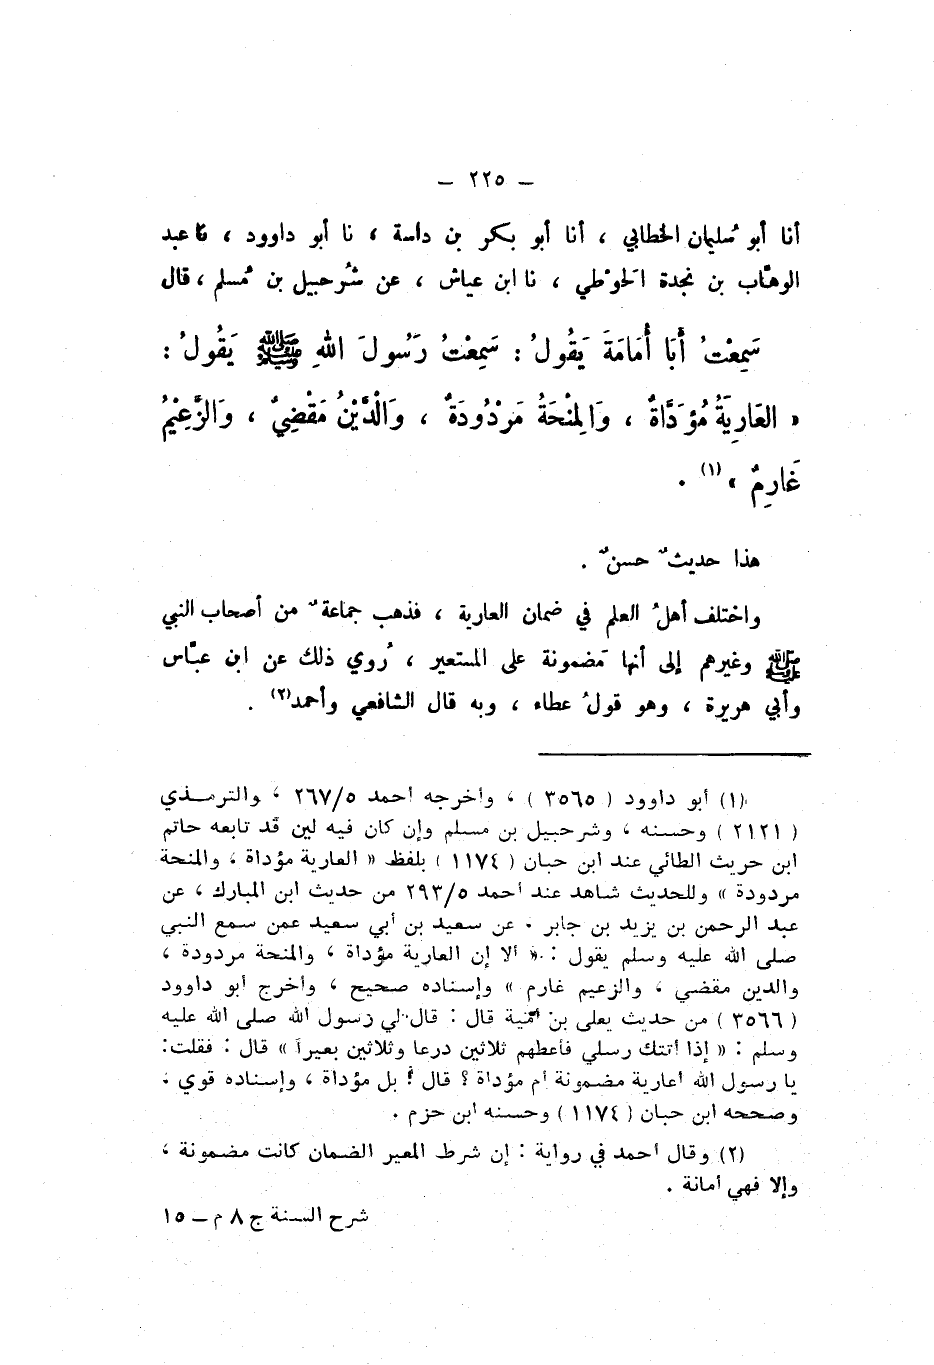 – ٢٢٥ –
أنا أبو سُليمان الخطابي ، أنا أبو بكر بن داسة ، نا أبو داوود ، نا عبد
الوهَّاب بن نجدة الَحوْطي ، نا ابن عياش ، عن شُرحبيل بن مُسلم ، قال
سَمِعْتُ أَبَا أُمَامَةَ يَقُولُ : سَمِعْتُ رَسُولَ اللهِ ﷺ يَقُولُ :
« العَارِيَةُ مُؤَدَّاةٌ ، وَالمِنْحَةُ مَرْدُودَةٌ ، وَالْدَّيْنُ مَقْضِيٌ ، وَالزَّعِيْمُ
غَارِمٌ » (١) .
هذا حديثٌ حسنٌ .
واختلف أهلُ العلم في ضمان العارية ، فذهب جماعةٌ من أصحاب النبي
ﷺ وغيرهم إلى أنها مَضمونة على المستعير ، رُوي ذلك عن ابن عبَّاس
وأبي هريرة ، وهو قولُ عطاء ، وبه قال الشافعي وأحمد(٢) .
(١) أبو داوود ( ٣٥٦٥ ) ، وأخرجه أحمد ٢٦٧/٥ ، والترمذي
( ٢١٢١ ) وحسنه ، وشرحبيل بن مسلم وإن كان فيه لين قد تابعه حاتم
ابن حريث الطائي عند ابن حبان ( ١١٧٤ ) بلفظ « العارية مؤداة ، والمنحة
مردودة » وللحديث شاهد عند أحمد ٢٩٣/٥ من حديث ابن المبارك ، عن
عبد الرحمن بن يزيد بن جابر . عن سعيد بن أبي سعيد عمن سمع النبي
صلى الله عليه وسلم يقول : « ألا إن العارية مؤداة ، والمنحة مردودة ،
والدين مقضي ، والزعيم غارم » وإسناده صحيح ، وأخرج أبو داوود
( ٣٥٦٦ ) من حديث يعلى بن أمية قال : قال لي رسول الله صلى الله عليه
وسلم : « إذا أتتك رسلي فأعطهم ثلاثين درعا وثلاثين بعيراً » قال : فقلت:
يا رسول الله أعارية مضمونة أم مؤداة ؟ قال : بل مؤداة ، وإسناده قوي ،
وصححه ابن حبان ( ١١٧٤ ) وحسنه ابن حزم .
(٢) وقال أحمد في رواية : إن شرط المعير الضمان كانت مضمونة ،
وإلا فهي أمانة .
شرح السنة ج ٨ م – ١٥